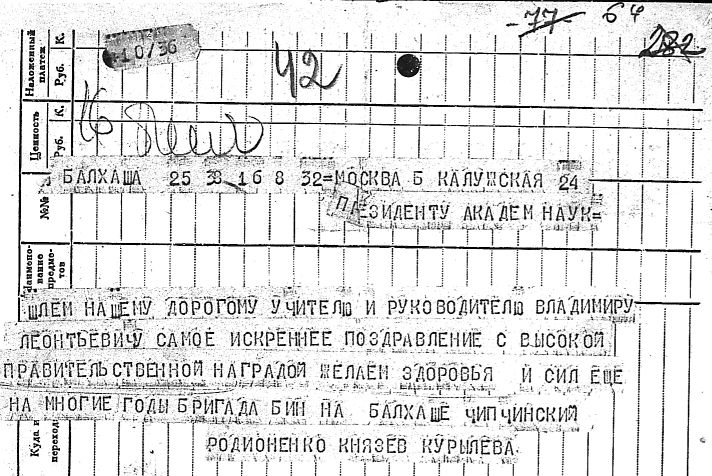 -77 64
282
10/36
42
Наложенный платеж Руб. К.
Ценность Руб. К.
БАЛХАША 25 38 16 8 32=МОСКВА Б КАЛУЖСКАЯ 24
№№
ЕЗИДЕНТУ АКАДЕМ НАУК=
ШЛЕМ НАШЕМУ ДОРОГОМУ УЧИТЕЛЮ И РУКОВОДИТЕЛЮ ВЛАДИМИРУ
ЛЕОНТЬЕВИЧУ САМОЕ ИСКРЕННЕЕ ПОЗДРАВЛЕНИЕ С ВЫСОКОЙ
ПРАВИТЕЛЬСТВЕННОЙ НАГРАДОЙ ЖЕЛАЕМ ЗДОРОВЬЯ И СИЛ ЕЩЕ
НА МНОГИЕ ГОДЫ БРИГАДА БИН НА БАЛХАШЕ ЧИПЧИНСКИЙ
РОДИОНЕНКО КНЯЗЕВ КУРЫЛЕВА
Куда и